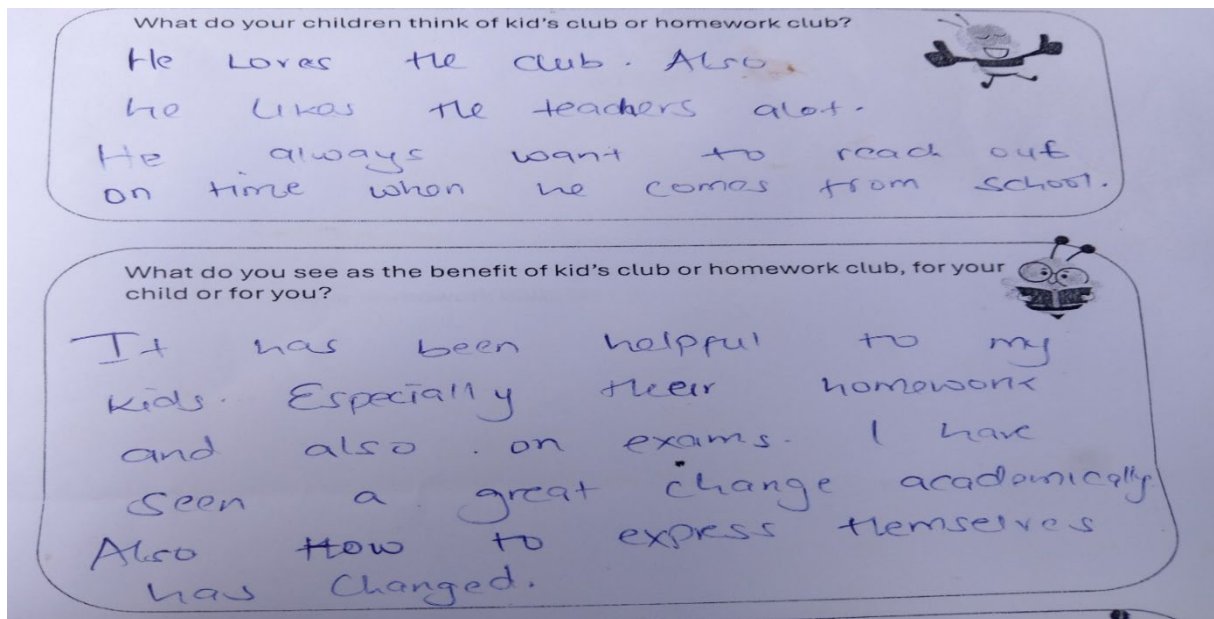 What do your children think of kid's club or homework club?
He Loves the club. Also
he likes the teachers alot.
He always want to reach out
on time when he comes from school.
What do you see as the benefit of kid's club or homework club, for your
child or for you?
It has been helpful to my
kids. Especially their homework
and also on exams. I have
seen a great change academically
Also How to express themselves
has Changed.